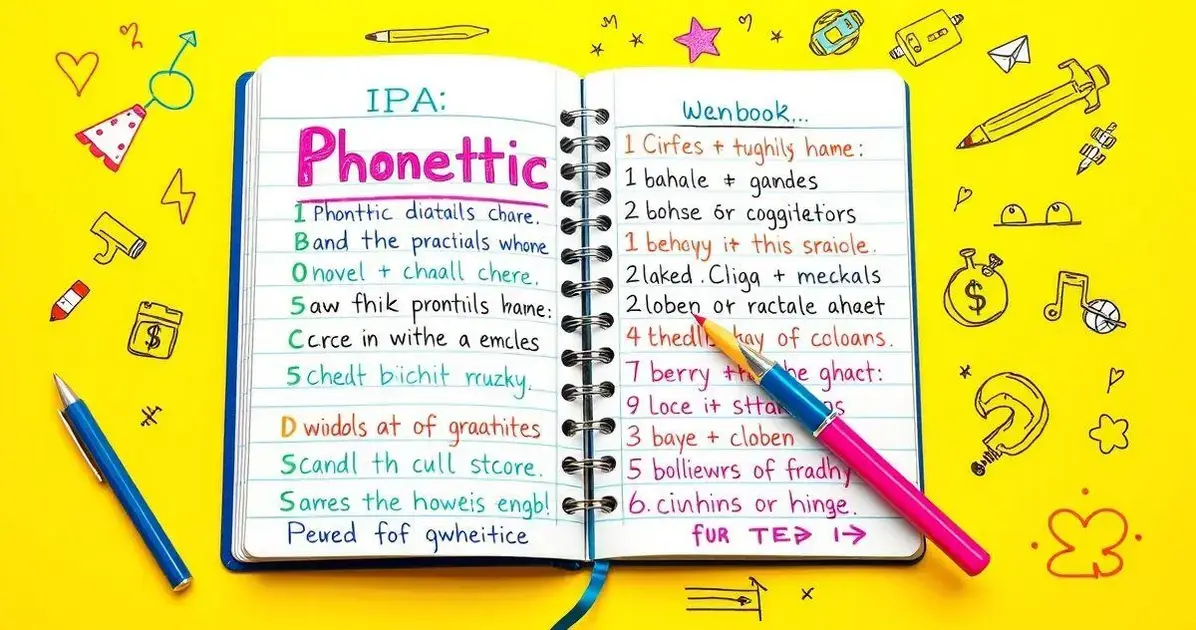 IPA:
Phonettic
1 Phonttic diatails chare.
Band the practials whone
Onovel + chaall chere.
Saw fhik prontils hame:
Ccrce in withe a emcles
5 chedt bichit rruzky.
D wiidols at of graatites
Scandl th cull stcore.
Sarres the howeis engb!
Peured fof gwheitice
Wenbook...
1 Cirfes + tughily hame:
1 bahale + gandes
2 bohse ór coggiletors
1 behoyy it this sraiole.
2laked. Cliga + meckals
2loben or ractale ahaet
4 thedl ay of coloans.
7 berry + he ghact:
9 Loce it
3 baye + cloben
5 bolliewrs of fradhy
6. civhins or hinge.
fUR TE 1→
$
$